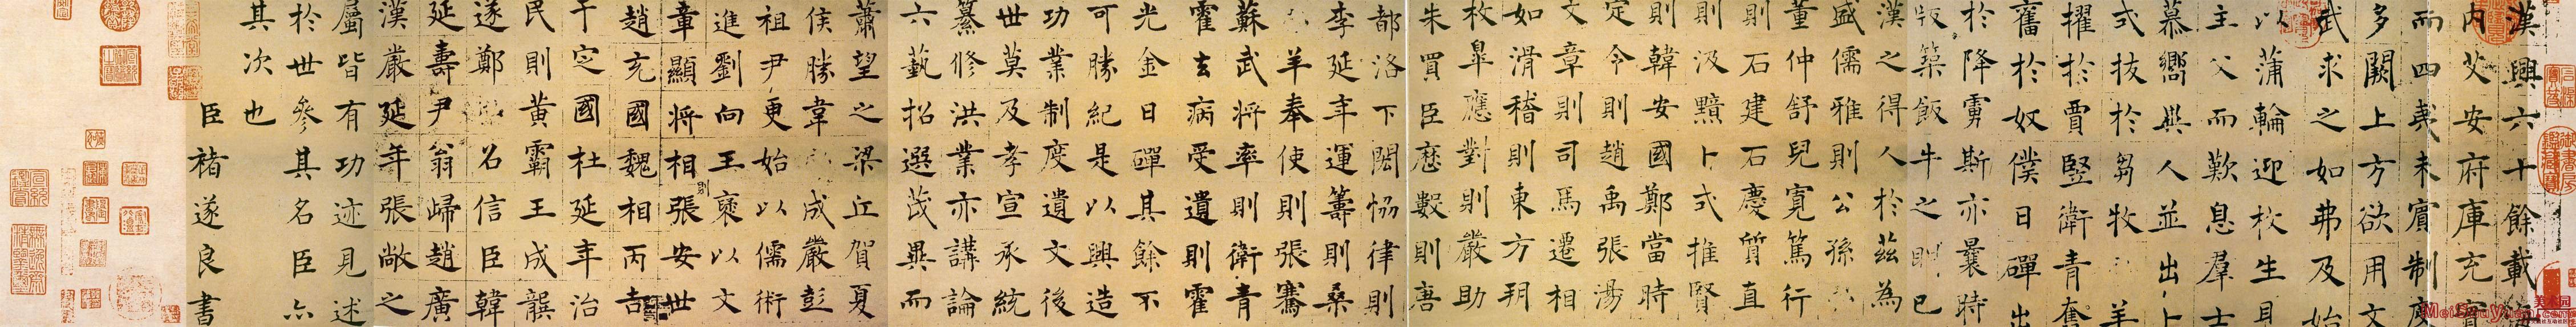 漢興六十餘載海
內艾安府庫充實
而四夷未賓制度
多闕上方欲用文
武求之如弗及始
以蒲輪迎枚生見
主父而歎息羣士
慕嚮異人並出卜
式拔於芻牧羊
擢於賈豎衛青奮
奮於奴僕日磾出
於降虜斯亦曩時
版築飯牛之朋已
漢之得人於茲為
盛儒雅則公孫
董仲舒兒寬篤行
則石建石慶質直
則汲黯卜式推賢
則韓安國鄭當時
定令則趙禹張湯
文章則司馬遷相
如滑稽則東方朔
枚皐應對則嚴助
朱買臣歷數則唐
都洛下閎恊律則
李延年運籌則桑
羊奉使則張騫
蘇武將率則衛青
霍去病受遺則霍
光金日磾其餘不
可勝紀是以興造
功業制度遺文後
世莫及孝宣承統
纂修洪業亦講論
六藝招選茂異而
蕭望之梁丘賀夏
侯勝韋成嚴彭
祖尹更始以儒術
進劉向王褒以文
章顯將相則張安世
趙充國魏相丙吉
于定國杜延年治
民則黃霸王成龔
遂鄭召信臣韓
延壽尹翁歸趙廣
漢嚴延年張敞之
屬皆有功迹見述
於世參其名臣亦
其次也
臣褚遂良書
美术园
MeiShuYuan.com